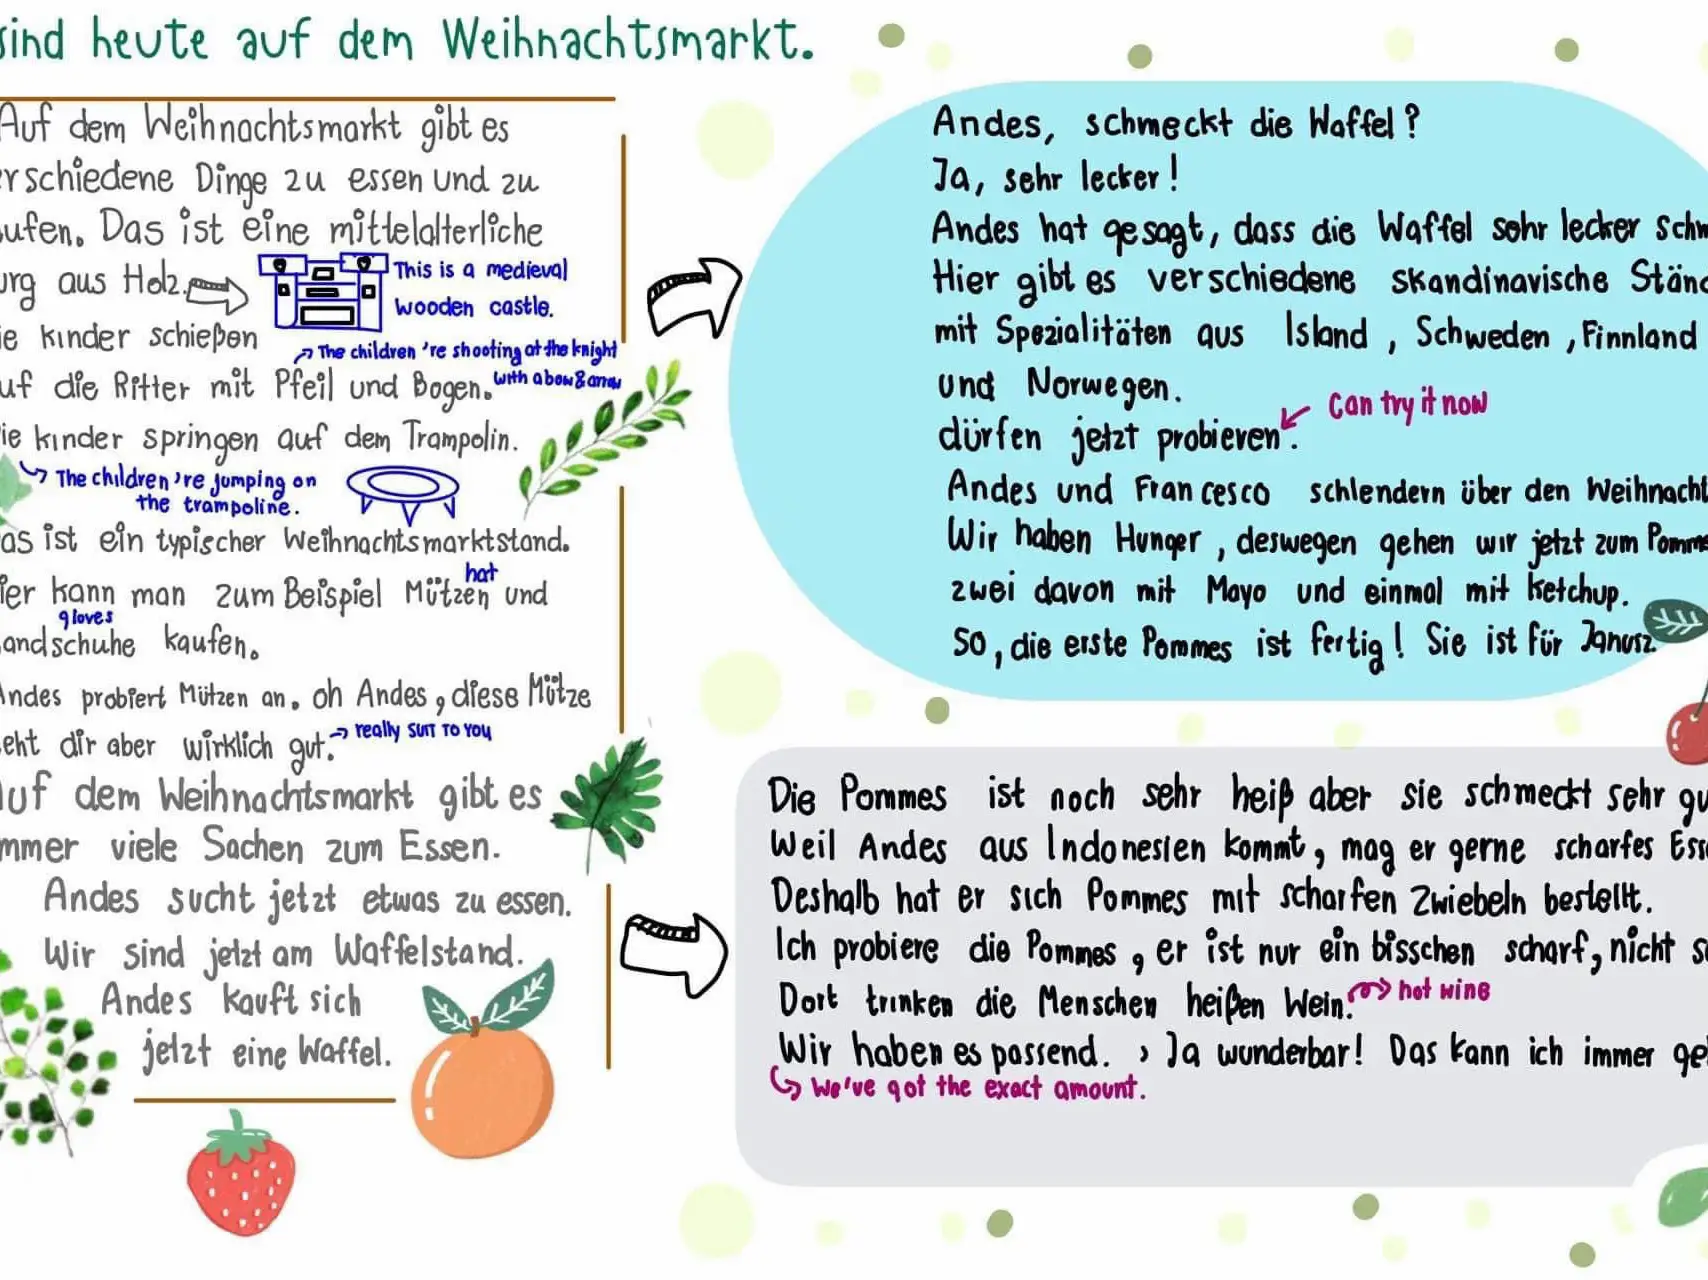 sind heute auf dem Weihnachtsmarkt.
Auf dem Weihnachtsmarkt gibt es
erschiedene Dinge zu essen und zu
aufen. Das ist eine mittelalterliche
urg aus Holz.
This is a medieval
wooden castle.
ie kinder schießen
The children 're shooting at the knight
with a bow & arrow
uf die Ritter mit Pfeil und Bogen.
ie kinder springen auf dem Trampolin.
The children 're jumping on
the trampoline.
as ist ein typischer Weihnachtsmarktstand.
ier kann man zum Beispiel Mützen und
hat
gloves
andschuhe kaufen.
Andes probiert Mützen an. oh Andes, diese Mütze
eht dir aber wirklich gut.
really suit to you
Auf dem Weihnachtsmarkt gibt es
mmer viele Sachen zum Essen.
Andes sucht jetzt etwas zu essen.
Wir sind jetzt am Waffelstand.
Andes kauft sich
jetzt eine Waffel.
Andes, schmeckt die Waffel?
Ja, sehr lecker!
Andes hat gesagt, dass die Waffel sehr lecker schm
Hier gibt es verschiedene skandinavische Stände
mit Spezialitäten aus Island, Schweden, Finnland
und Norwegen.
dürfen jetzt probieren.
Can try it now
Andes und Francesco schlendern über den Weihnacht
Wir haben Hunger, deswegen gehen wir jetzt zum Pomme
zwei davon mit Mayo und einmal mit Ketchup.
So, die erste Pommes ist fertig! Sie ist für Janusz
Die Pommes ist noch sehr heiß aber sie schmeckt sehr gu
Weil Andes aus Indonesien kommt, mag er gerne scharfes Ess
Deshalb hat er sich Pommes mit scharfen Zwiebeln bestellt.
Ich probiere die Pommes, er ist nur ein bisschen scharf, nicht s
Dort trinken die Menschen heißen Wein.
hot wine
Wir haben es passend. , Ja wunderbar! Das kann ich immer ge
We've got the exact amount.